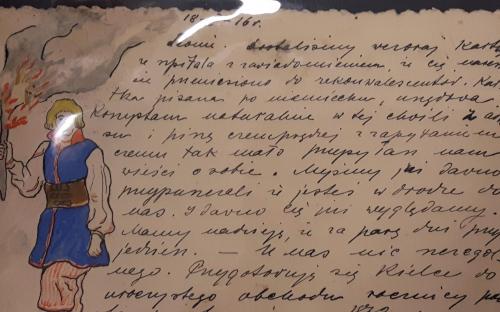 18 16 r.
Dostaliśmy wczoraj Kart
ze szpitala z zawiadomieniem, iż Cię
przeniesiono do rekonwalescentów. Kar
tka pisana po niemiecku, urzędowa.
Korzystam naturalnie w tej chwili z ad
su i piszę czemprędzej z zapytaniem
czemu tak mało przesyłasz nam
wieści o sobie. Myśmy już dawno
przypuszczali iż jesteś w drodze do
nas. I dawno Cię już wyglądamy.
Mamy nadzieję, iż za parę dni przy
jedziesz. — U nas nic szczegól
nego. Przygotowują się Kielce do
uroczystego obchodu rocznicy